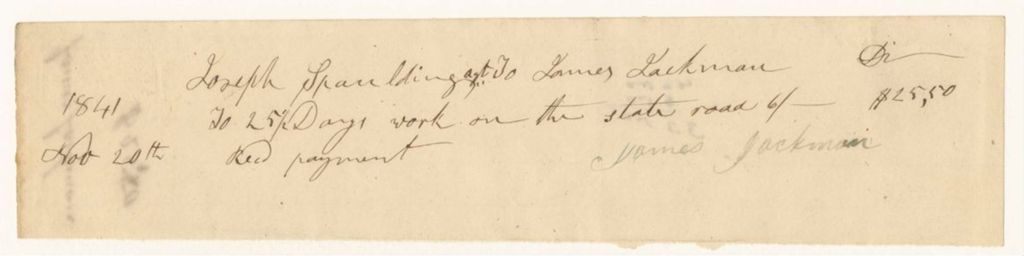 Joseph Spaulding agt To James Jackman Dr
1841 To 25½ Days work on the state road 6/— $25,50
Nov 20th Recd payment James Jackman